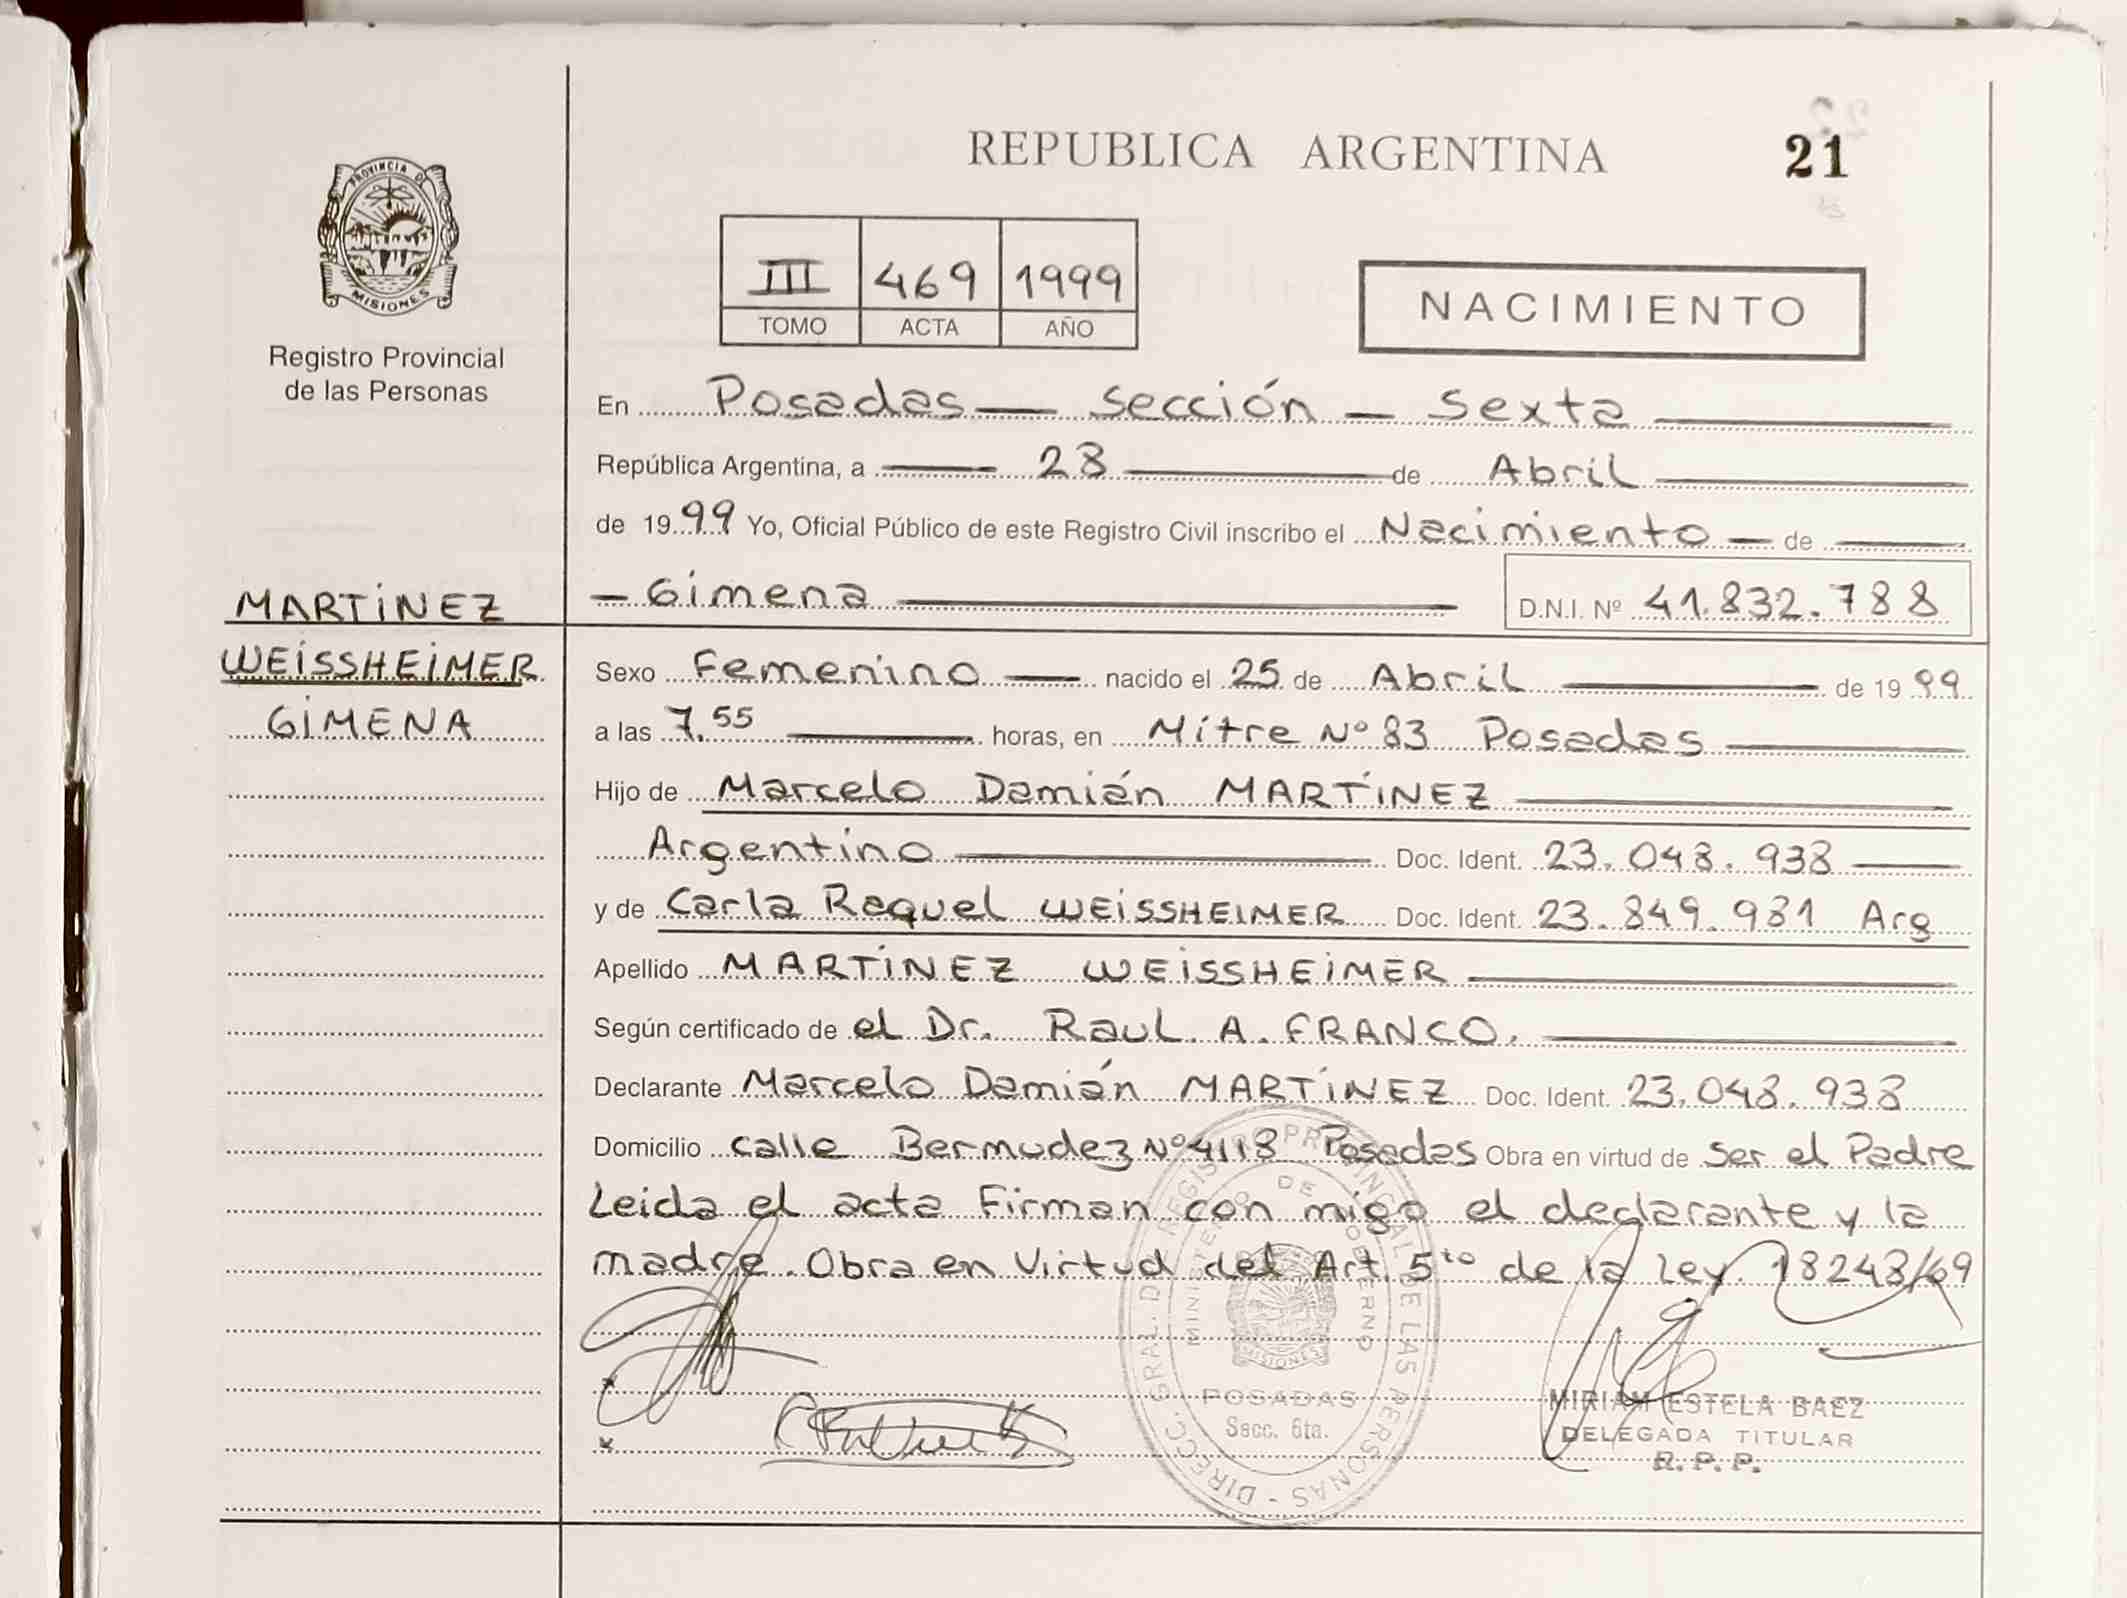 REPUBLICA ARGENTINA
21
PROVINCIA DE
MISIONES
Registro Provincial
de las Personas
III 469 1999
TOMO ACTA AÑO
NACIMIENTO
En Posadas — Sección — Sexta
República Argentina, a — 28 — de Abril
de 1999 Yo, Oficial Público de este Registro Civil inscribo el Nacimiento — de —
— Gimena — D.N.I. Nº 41.832.788
MARTÍNEZ
WEISSHEIMER
GIMENA
Sexo Femenino — nacido el 25 de Abril — de 1999
a las 7.55 — horas, en Mitre Nº 83 Posadas —
Hijo de Marcelo Damián MARTÍNEZ —
Argentino — Doc. Ident. 23.048.938 —
y de Carla Raquel WEISSHEIMER Doc. Ident. 23.849.981 Arg
Apellido MARTÍNEZ WEISSHEIMER —
Según certificado de el Dr. Raul A. FRANCO. —
Declarante Marcelo Damián MARTÍNEZ Doc. Ident. 23.048.938
Domicilio calle Bermudez Nº 4118 Posadas Obra en virtud de ser el Padre
Leida el acta Firman con migo el declarante y la
madre. Obra en Virtud del Art. 5to de la Ley. 18248/69
DIRECC. GRAL. DEL REGISTRO PROVINCIAL DE LAS PERSONAS
MINISTERIO DE GOBIERNO
MISIONES
POSADAS
Secc. 6ta.
MIRIAM ESTELA BAEZ
DELEGADA TITULAR
R.P.P.